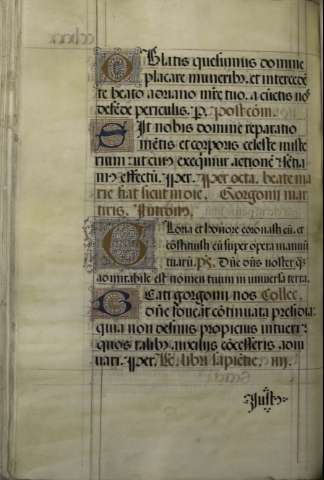 Oblatis quesumus domine
placare muneribꝫ. et intercedē
te beato adriano mr̄e tuo. a cūctis nos
defēde periculis. P. Postcom̄.
Sit nobis domine reparatio
mētis et corporis celeste miste
rium: ut cuius exeqmur actionē sētia
mus effectū. Per. Per octa. beate ma
rie fiat sicut in die. Gorgonii mar
tiris. Introitus.
Gloria et honore coronasti eū. et
cōstituisti eū super opera manuū
tuarū. ps̄. Dn̄e dn̄s noster. q̄ꝫ
admirabile est nomen tuum in universa terra.
Beati gorgonii nos Collec.
dn̄e foveat cōtinuata presidia:
quia non desinis propicius intueri:
quos talibꝫ auxiliis cōcesseris adiu
vari. Per. Lc̄. libri sapiētie. iiii.
Just